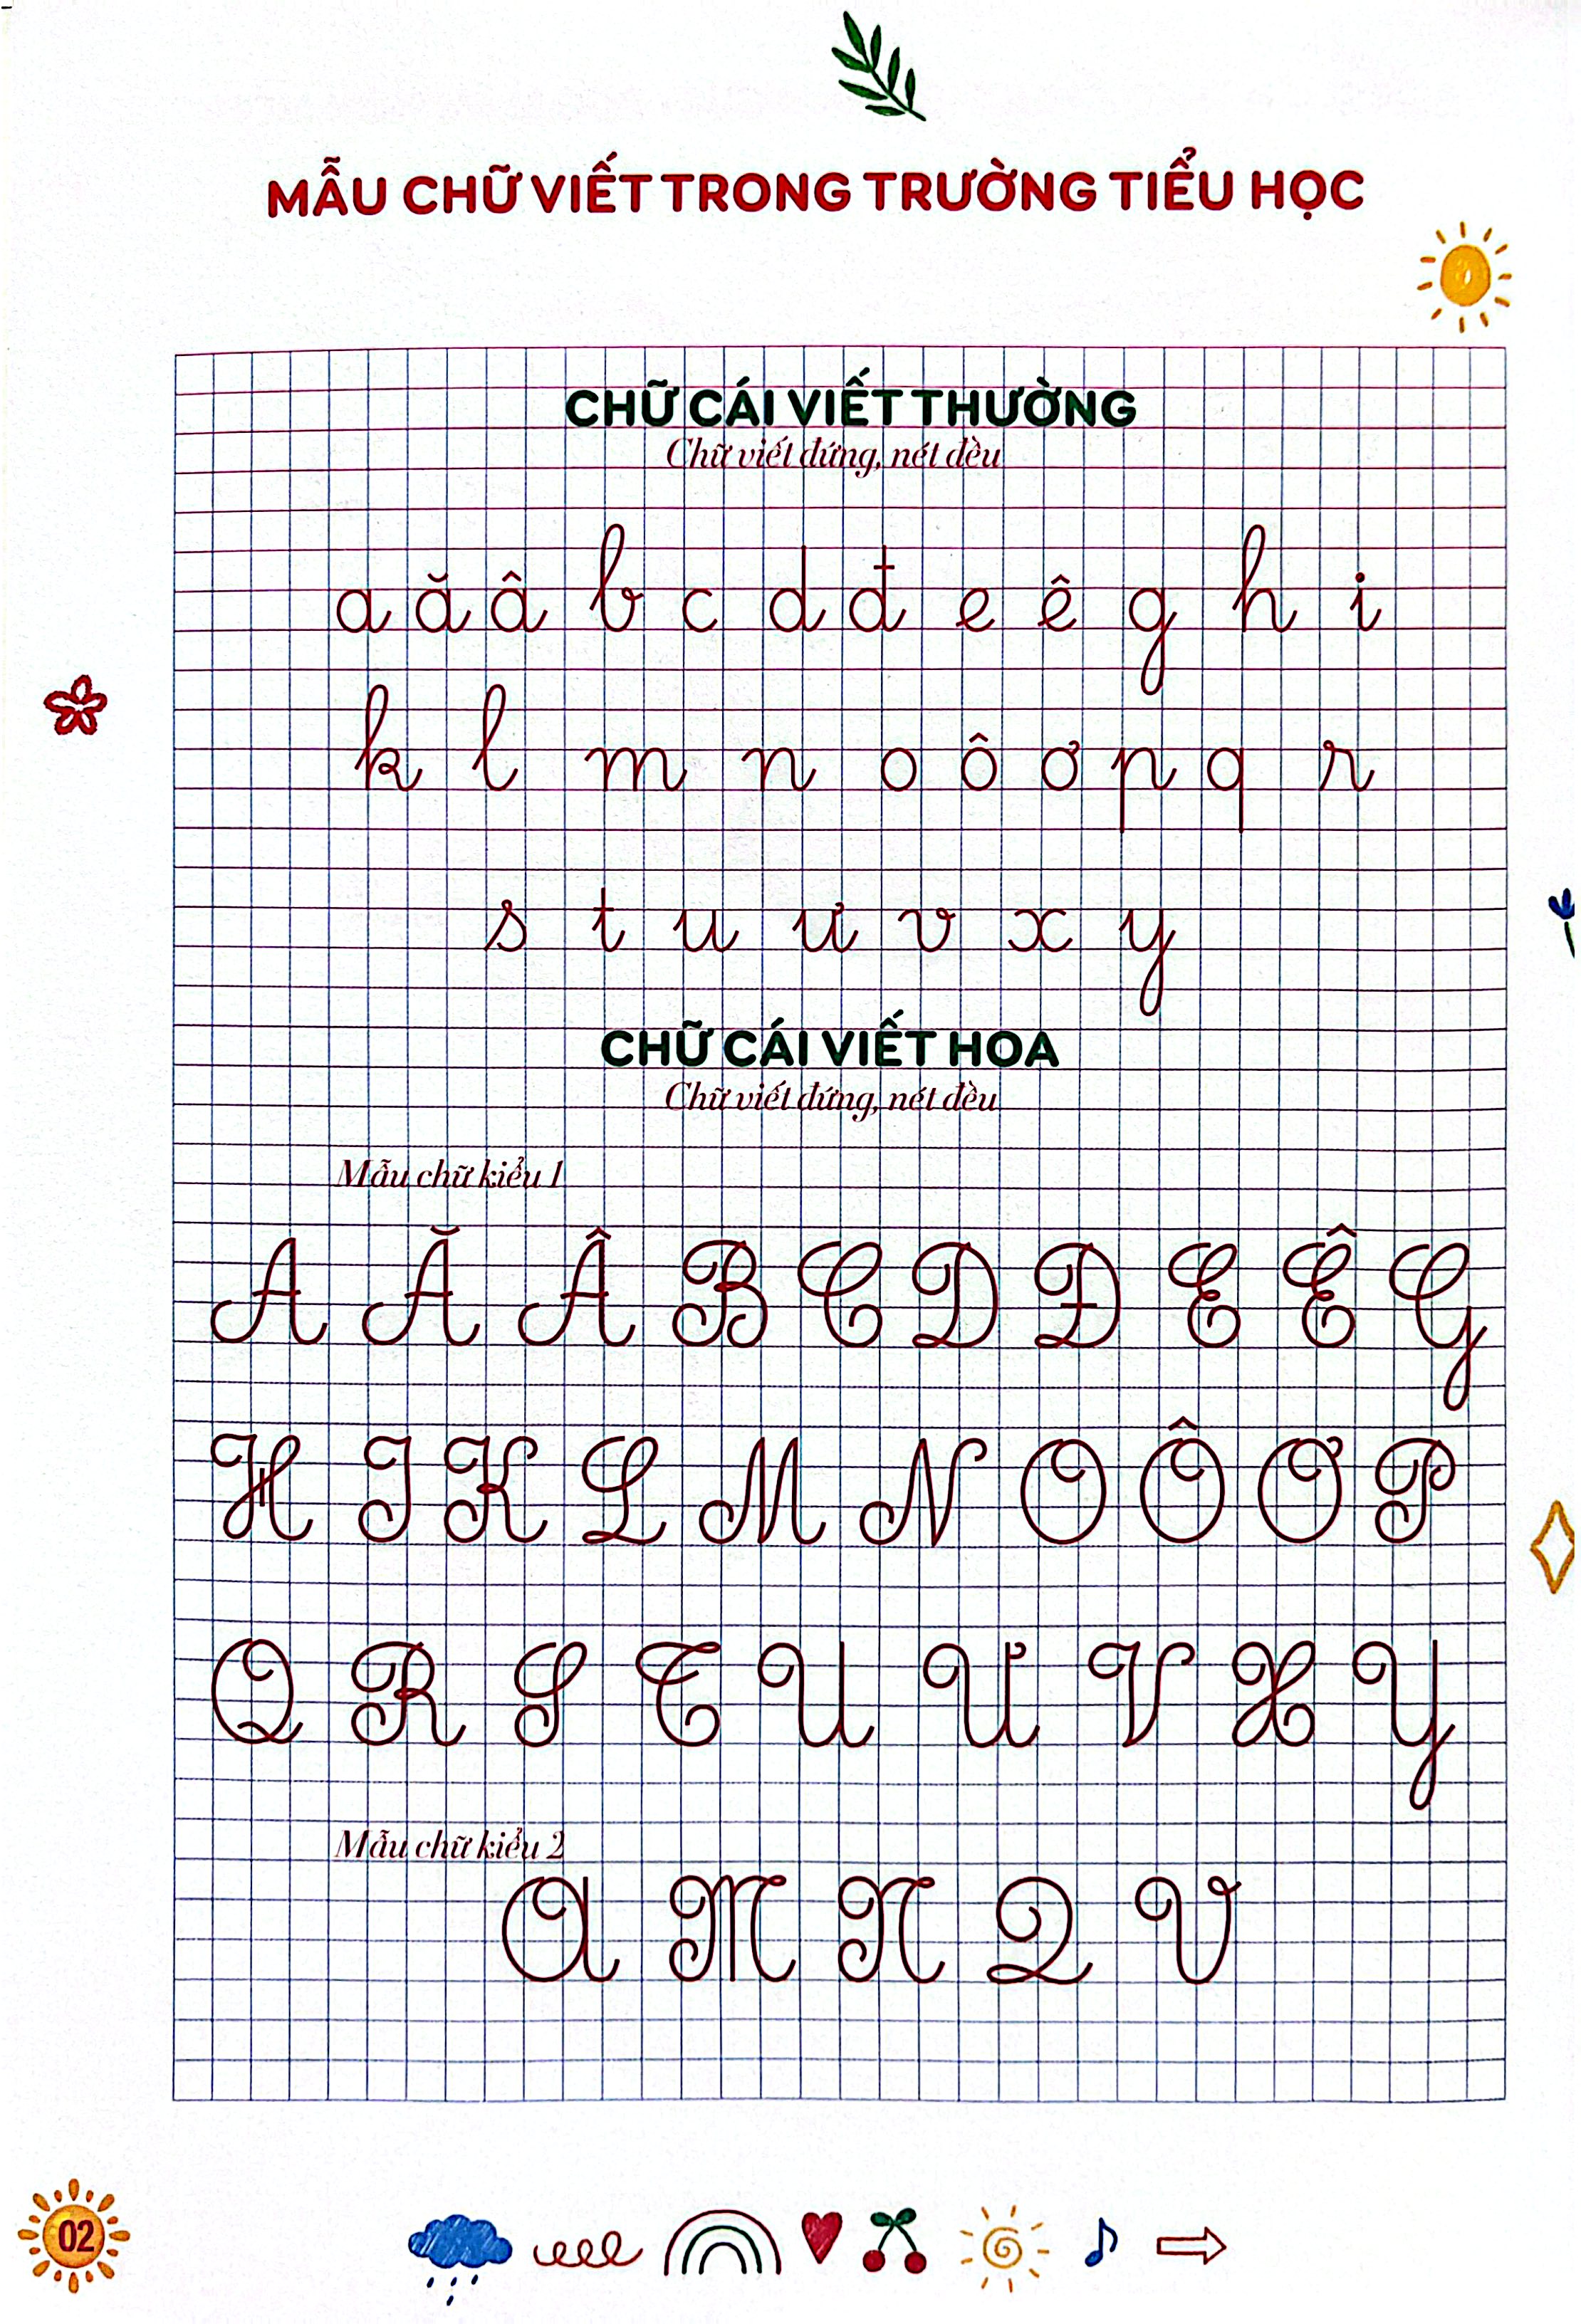 MẪU CHỮ VIẾT TRONG TRƯỜNG TIỂU HỌC
CHỮ CÁI VIẾT THƯỜNG
Chữ viết đứng, nét đều
a ă â b c d đ e ê g h i
k l m n o ô ơ p q r
s t u ư v x y
CHỮ CÁI VIẾT HOA
Chữ viết đứng, nét đều
Mẫu chữ kiểu 1
A Ă Â B C D Đ E Ê G
H I K L M N O Ô Ơ P
Q R S T U Ư V X Y
Mẫu chữ kiểu 2
A M N Q V
02